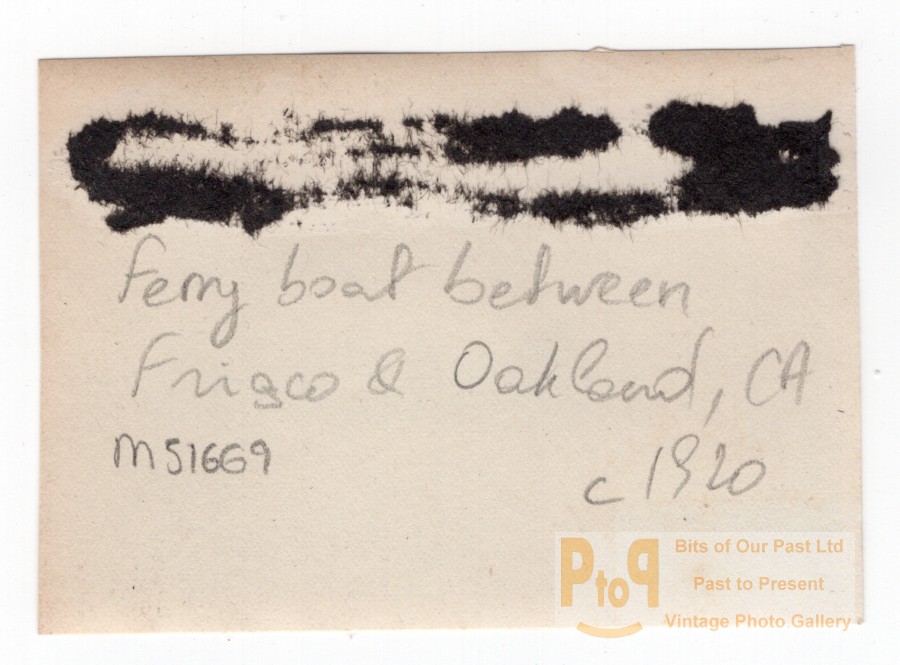 Ferry boat between
Frisco & Oakland, CA
MS1669
c 1920
PtoP
Bits of Our Past Ltd
Past to Present
Vintage Photo Gallery